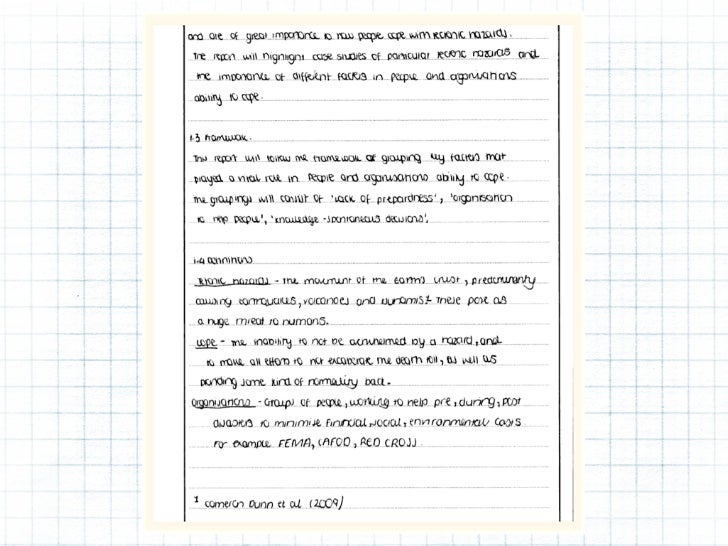 and are of great importance to how people cope with tectonic hazards.
The report will highlight case studies of particular tectonic hazards and
the importance of different factors in people and organisations
ability to cope.
1.3 Framework.
This report will follow the framework of grouping key factors that
played a vital role in people and organisations ability to cope.
The groupings will consist of 'lack of preparedness', 'organisation
to help people', 'knowledge - spontaneous decisions'.
1.4 Definitions
Tectonic hazards - The movement of the earths crust, predominantly
causing earthquakes, volcanoes and tsunamis I these pose as
a huge threat to humans.
cope - The inability to not be by a hazard, and
to make all effort to not the death toll, as well as
some kind of normality back.
organisations - Groups of people, working to help pre, during, post
disasters to minimise financial, social, environmental costs
for example FEMA, CAFOD, RED CROSS.
I Cameron Dunn et al (2009)